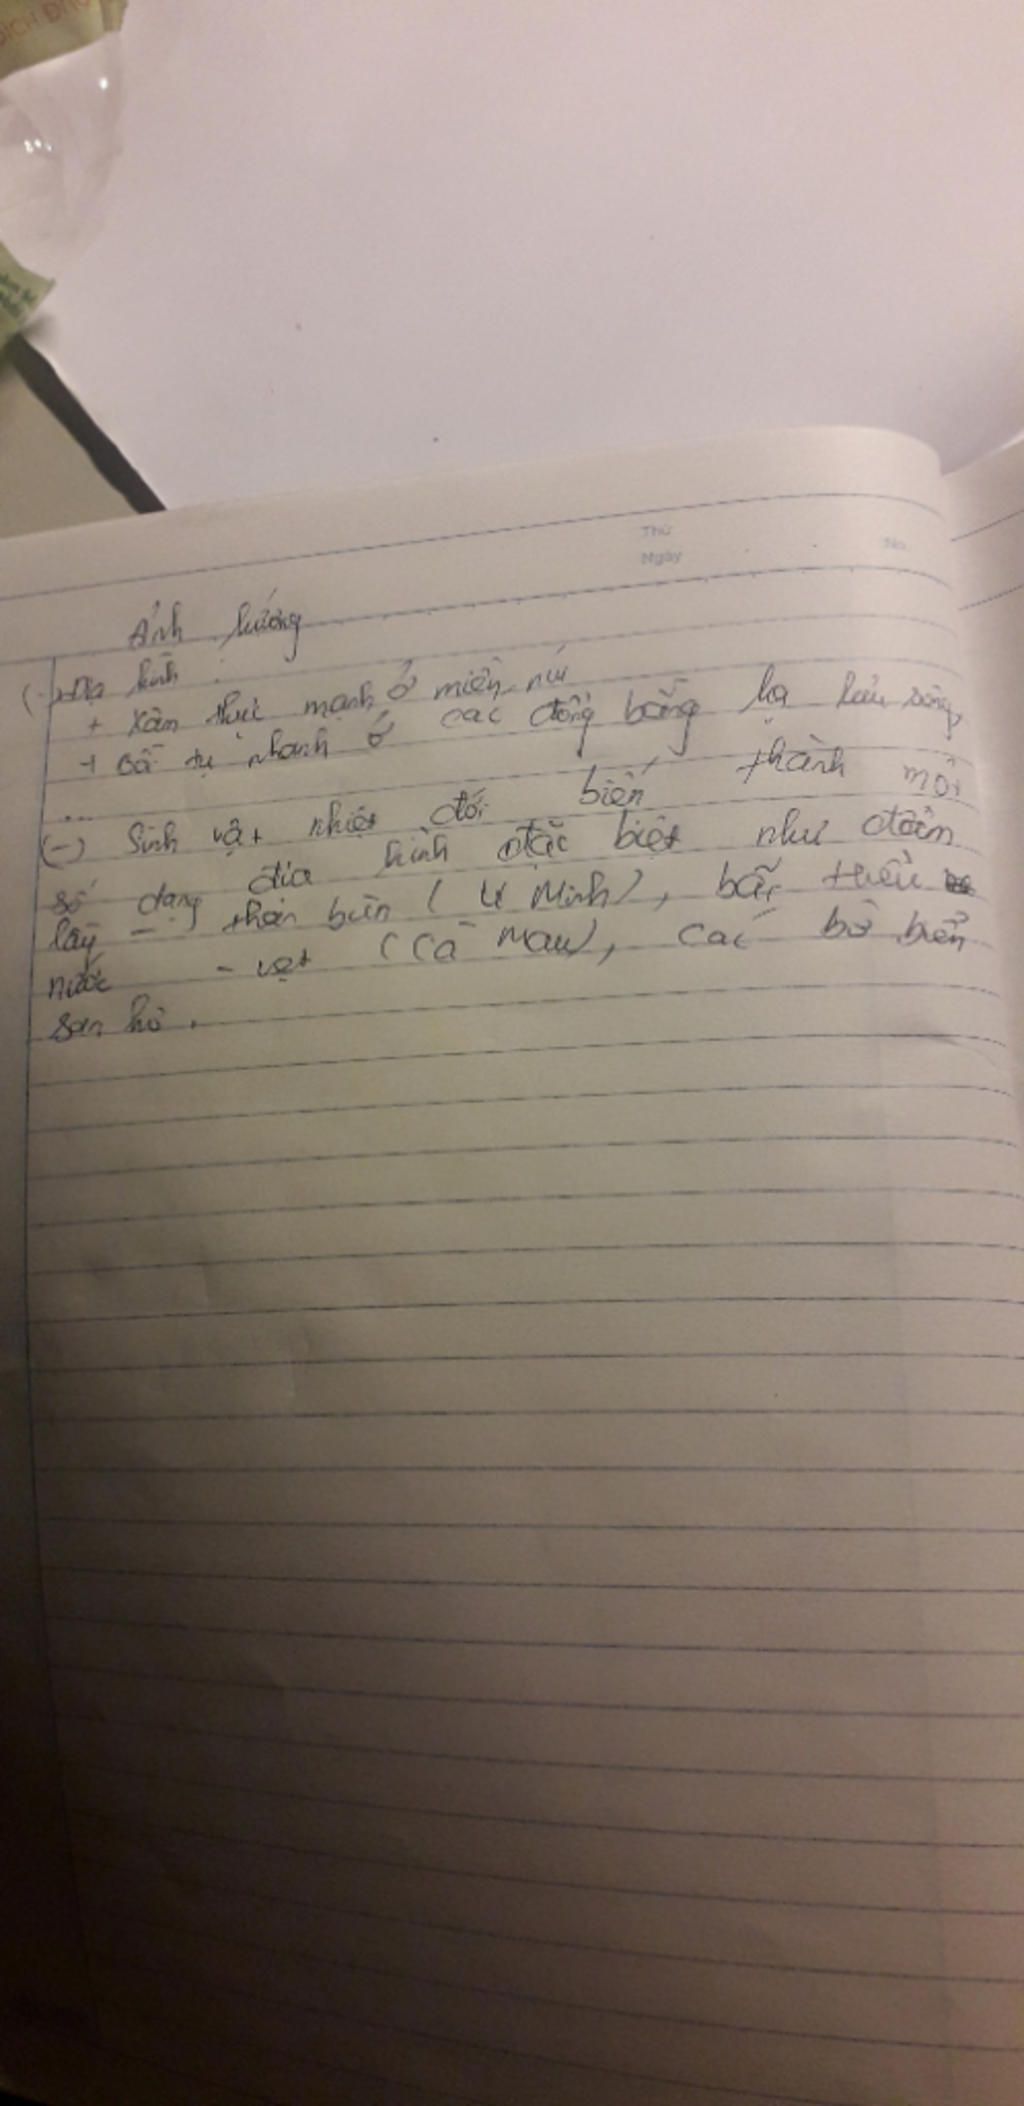 DỊCH
Thứ
Ngày No.
Ảnh hưởng
(-) Địa hình :
+ xâm thực mạnh ở miền núi
+ bồi tụ nhanh ở các đồng bằng hạ lưu sông,
...
(-) Sinh vật nhiệt đới biến thành một
số dạng địa hình đặc biệt như đầm
lầy - than bùn (U Minh), bãi triều
nước - vẹt (Cà Mau), các bờ biển
san hô .